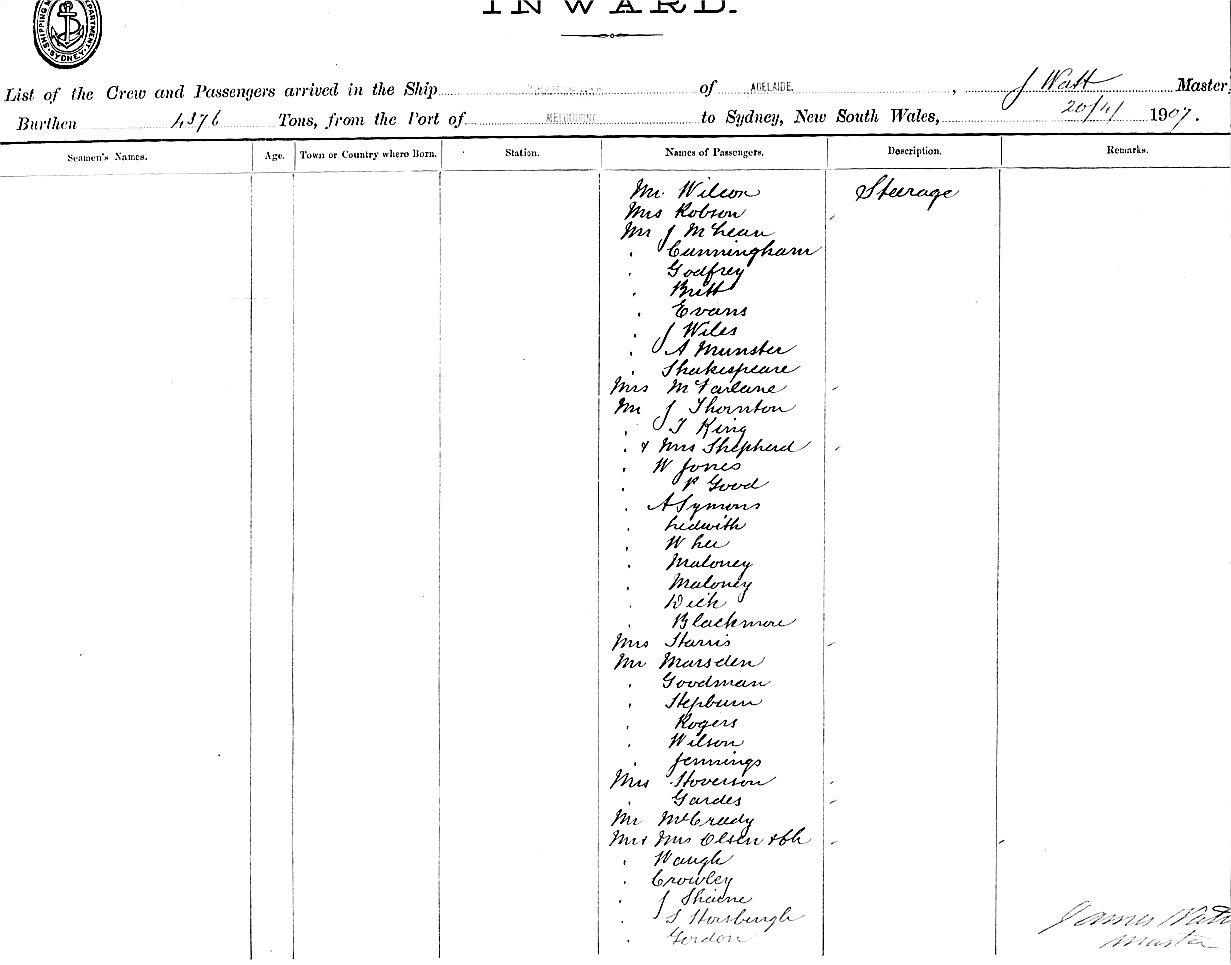 INWARD.
SHIPPING DEPARTMENT SYDNEY
List of the Crew and Passengers arrived in the Ship of ADELAIDE. , J Watt Master,
Burthen 4376 Tons, from the Port of MELBOURNE to Sydney, New South Wales, 20/4/ 1907.
Seamen's Names. Age. Town or Country where Born. Station. Names of Passengers. Description. Remarks.
Mr. Wilson Steerage
Mrs Robson
Mr J McLean
" Cunningham
" Godfrey
" Britt
" Evans
" J Wiles
" A Munster
" Shakespeare
Mrs McFarlane
Mr J Thornton
" T King
" & Mrs Shepherd
" W Jones
" P Good
" A Symons
" Ledwith
" W Lee
" Maloney
" Maloney
" Dick
" Blackmore
Mrs Harris
Mr Marsden
" Goodman
" Hepburn
" Rogers
" Wilson
" Jennings
Mrs Hoverson
" Gardes
Mr McCready
Mr & Mrs Olsen & Ch
" Waugh
" Crowley
" J Sheene
" S Horsburgh
" Gordon
James Watt
Master